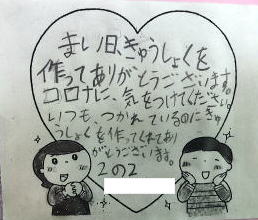 まい日、きゅうしょくを
作ってありがとうございます。
コロナに、気をつけてください。
いつも、つかれているのにきゅ
うしょくを作ってくれてあり
がとうございます。
2の2